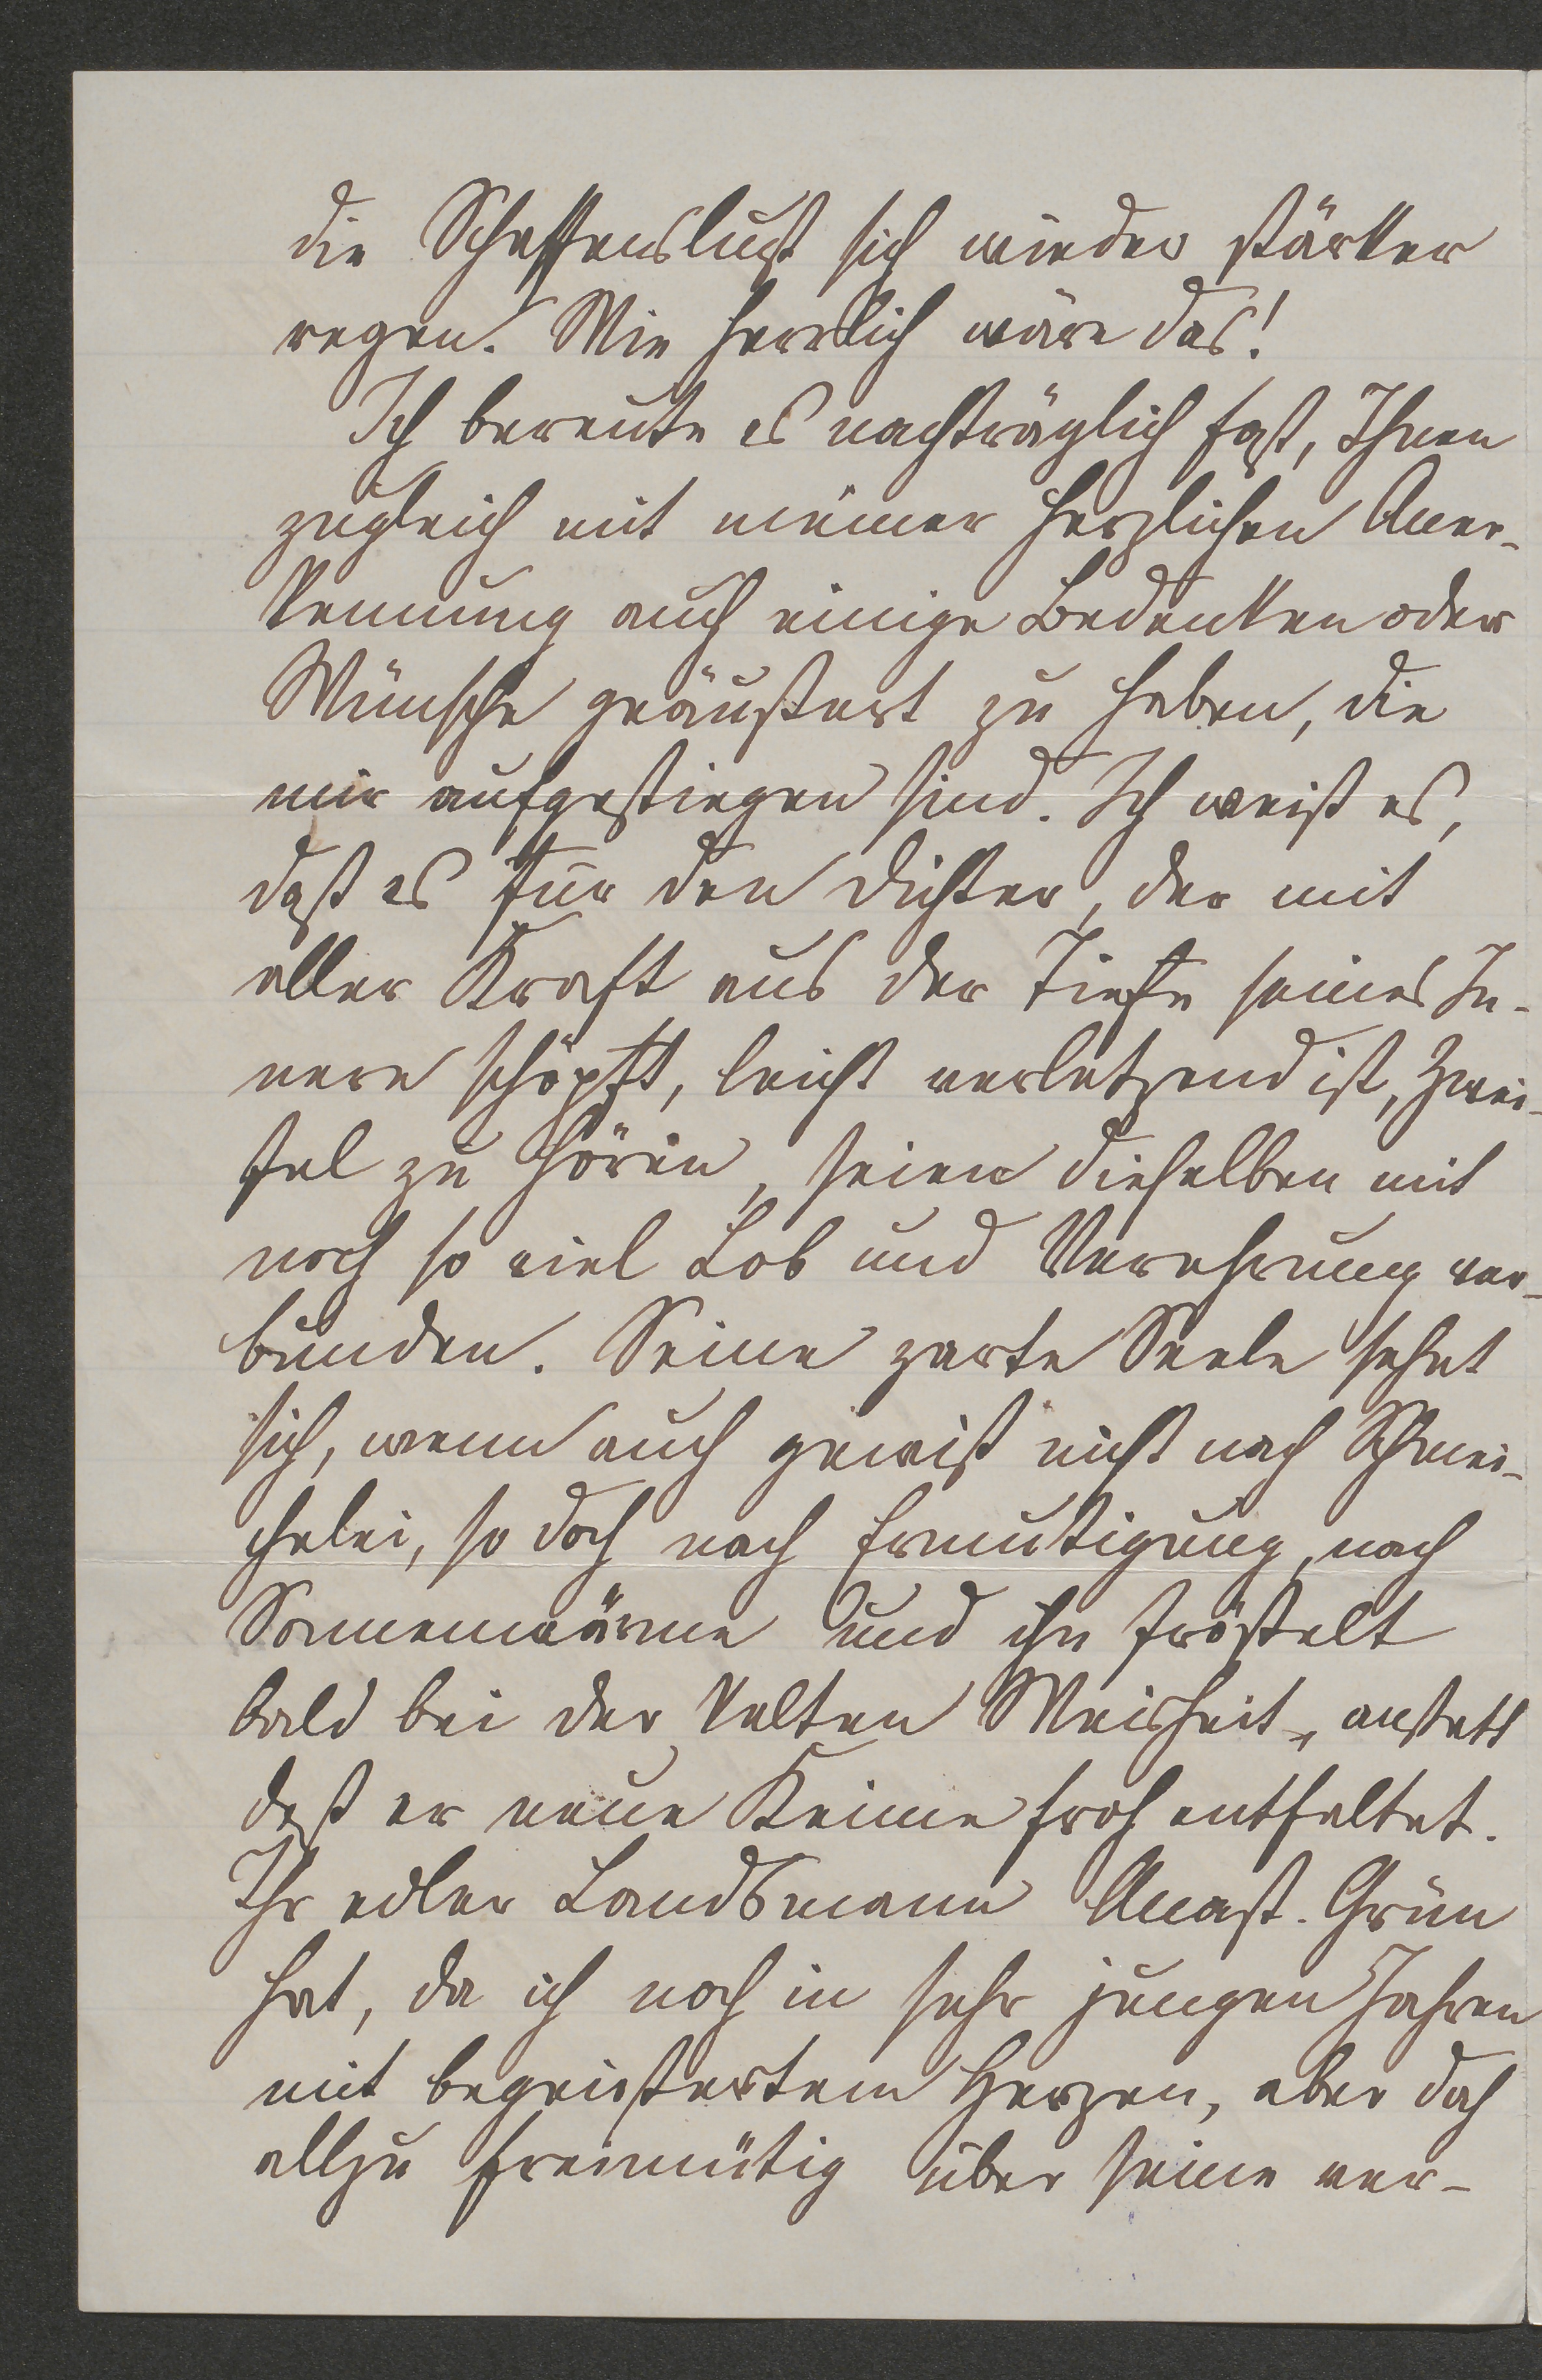 die Schaffenslust sich wieder stärker
regen. Wie herrlich wäre das!
Ich bereute es nachträglich fast, Ihnen
zugleich mit meiner herzlichen Aner-
kennung auch einige Bedenken oder
Wünsche geäußert zu haben, die
mir aufgestiegen sind. Ich weiß es,
daß es für den Dichter, der mit
aller Kraft aus der Tiefe seines In-
nern schöpft, leicht verletzend ist, Zwei-
fel zu hören, seien dieselben mit
noch so viel Lob und Verehrung ver-
bunden. Seine zarte Seele sehnt
sich, wenn auch gewiß nicht nach Schmei-
chelei, so doch nach Ermutigung, nach
Sonnenwärme und ihn fröstelt
bald bei der kalten Weisheit, anstatt
daß er neue Keime froh entfaltet.
Ihr edler Landsmann Anast. Grün
hat, da ich noch in sehr jungen Jahren
mit begeistertem Herzen, aber doch
allzu freimütig über seine ver-